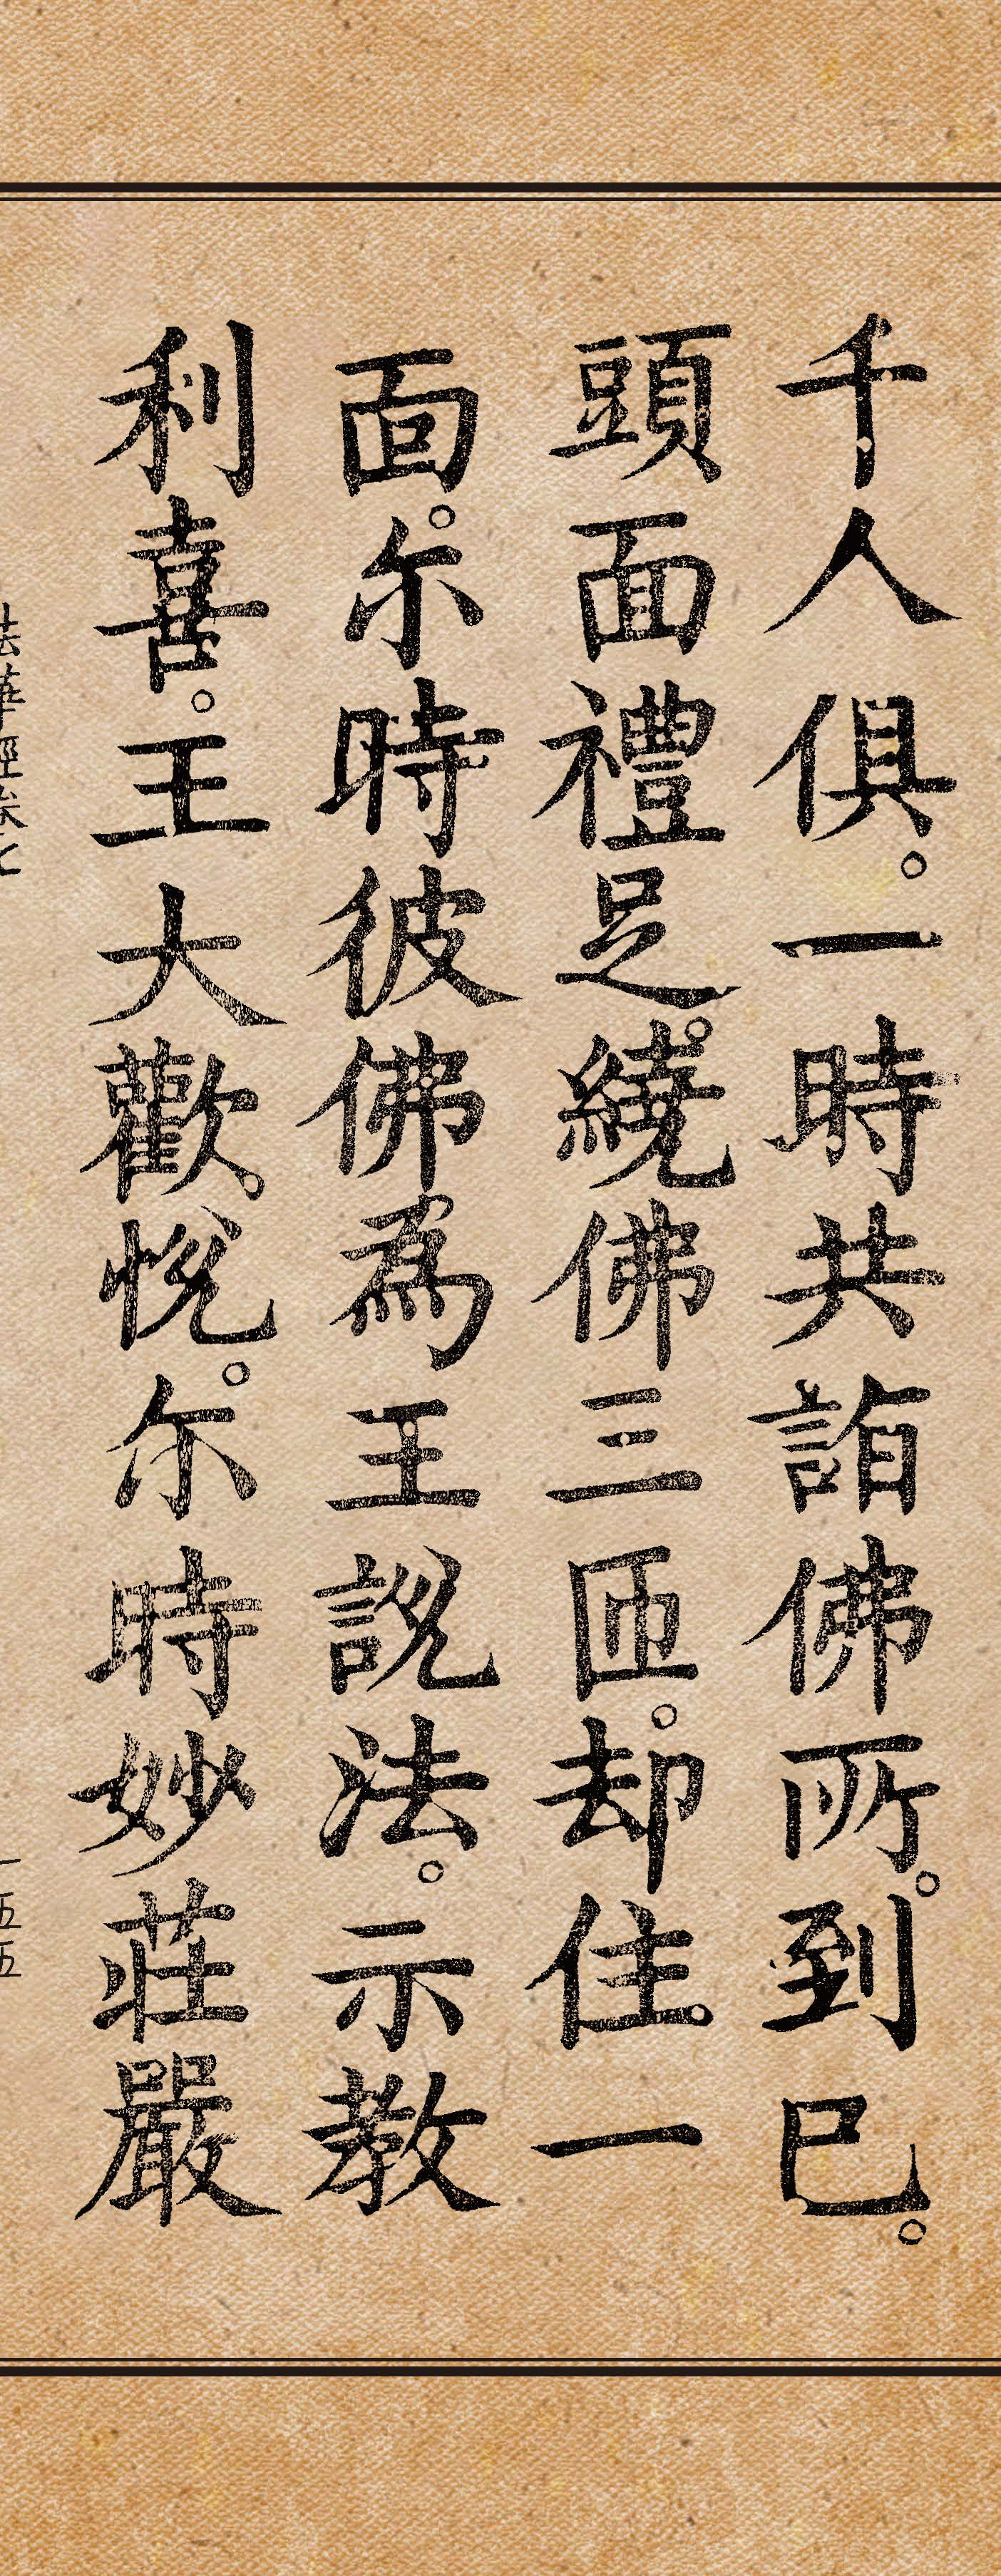 千人俱。一時共詣佛所。到已。
頭面禮足。繞佛三匝。却住。一
面。尒時彼佛為王說法。示教
利喜。王大歡。悅。尒時妙莊嚴
法華經卷七
一五五